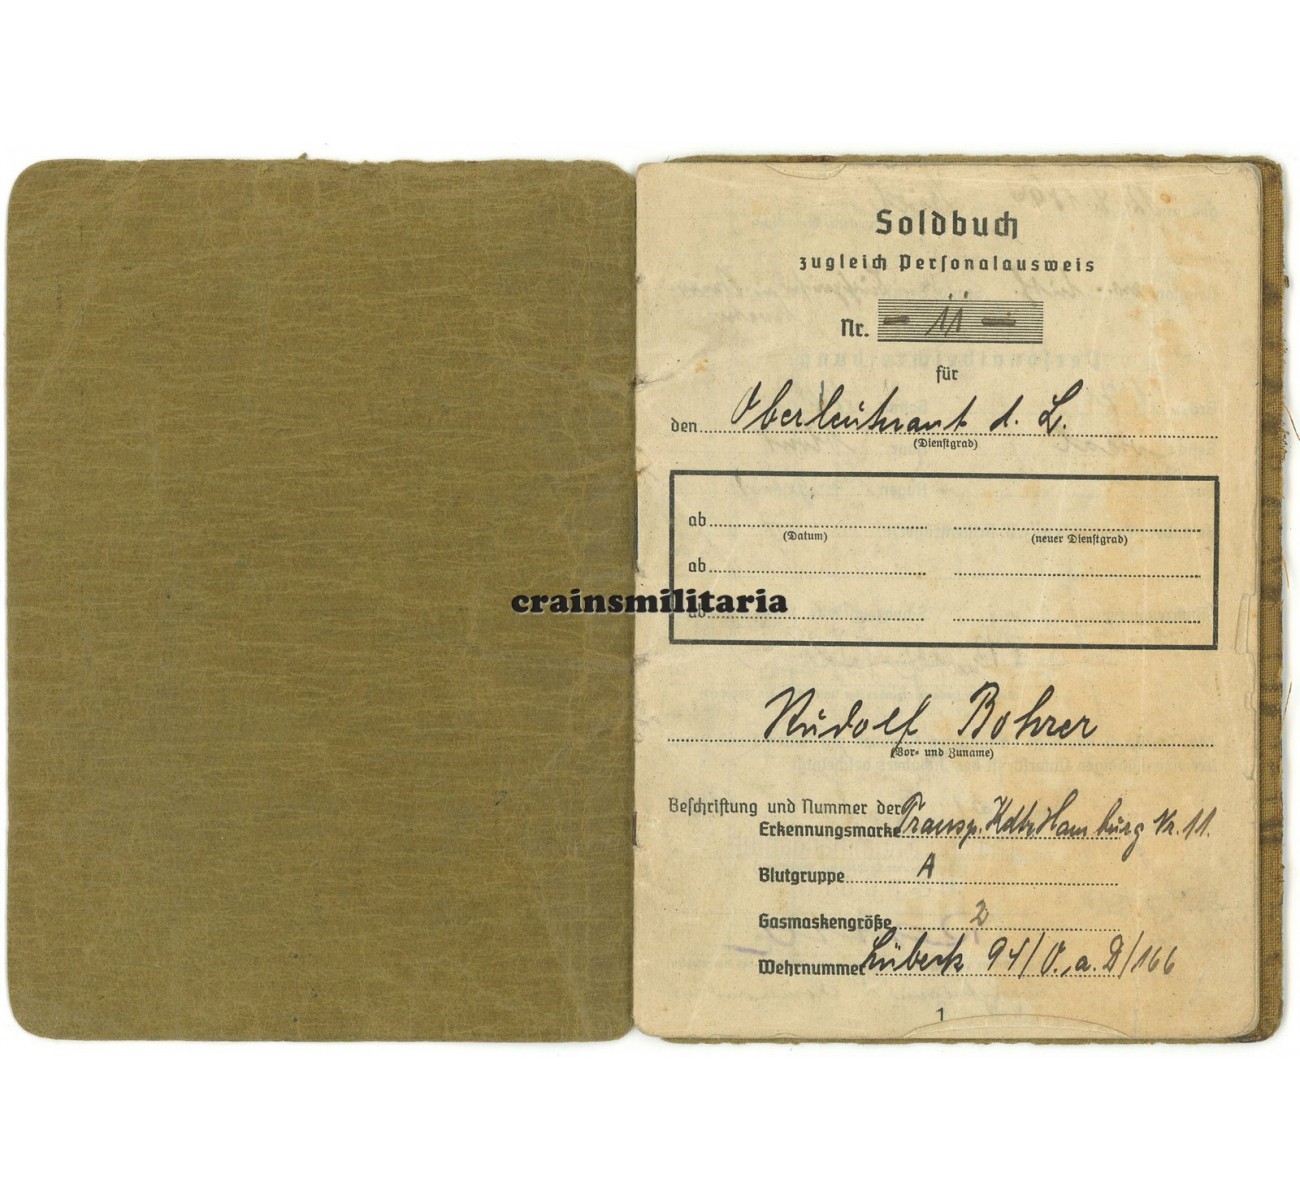 Soldbuch
zugleich Personalausweis
Nr. – 11 –
für
den Oberleutnant d. L.
(Dienstgrad)
ab
(Datum) (neuer Dienstgrad)
ab
crainsmilitaria
ab
Rudolf Bohrer
(Vor- und Zuname)
Beschriftung und Nummer der
Erkennungsmarke Transp. Kdtr Hamburg Nr. 11.
Blutgruppe A
Gasmaskengröße 2
Wehrnummer Lübeck 94/O. a. D/166
1